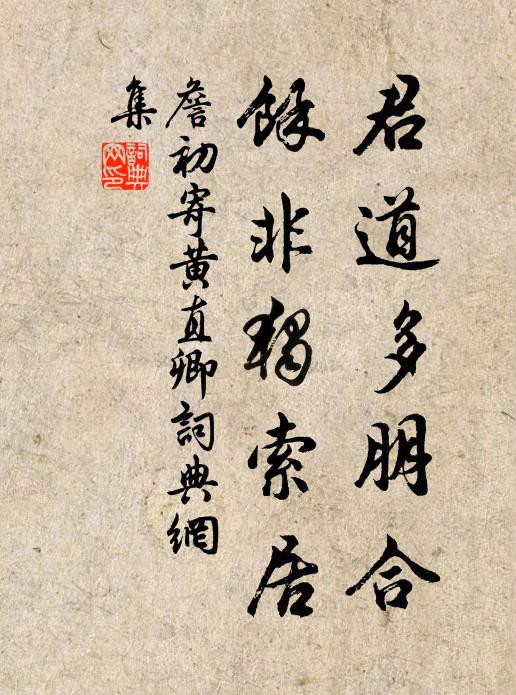 君道多朋合
餘非獨索居
詹初寄黄直卿詞典網
集
詞典網印